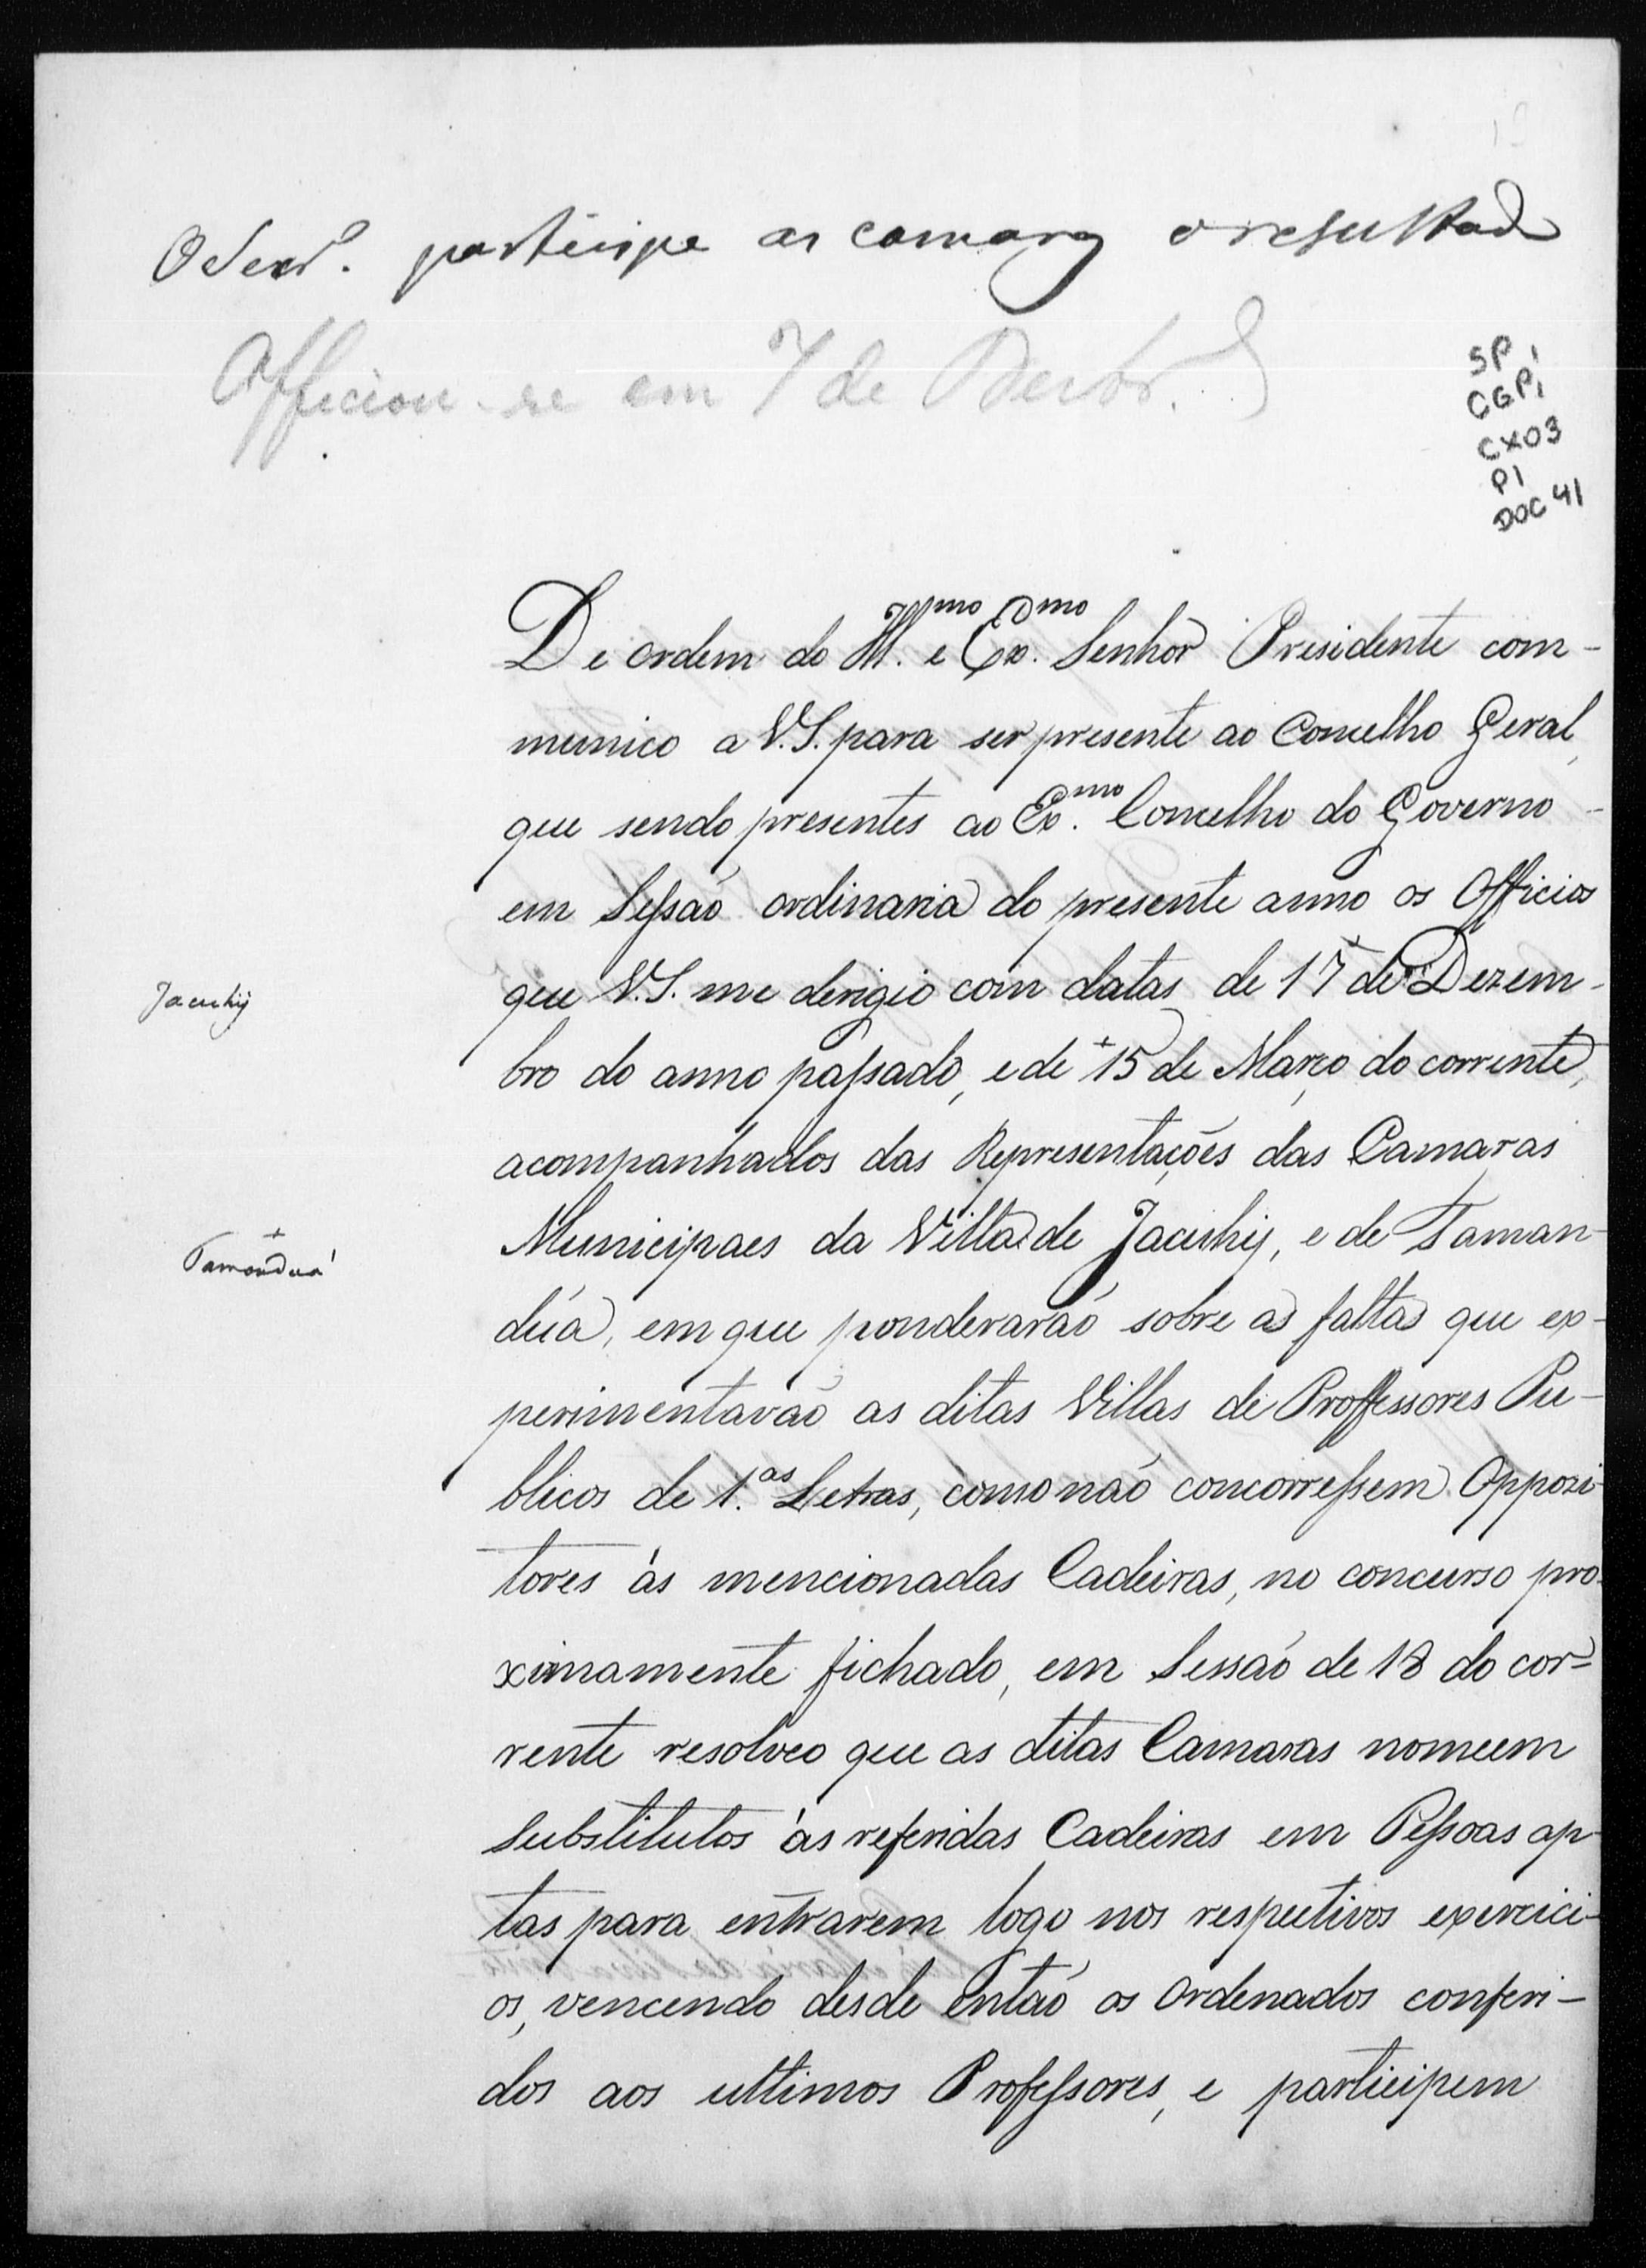 O Secr. participe as camaras o resultado
Officiou-se em 7 de Dezbr.
SP,
CGP,
CX03
P1
DOC 41
De ordem do Ill.mo e Ex.mo Senhor Presidente com-
munico a V.S. para ser presente ao Concelho Geral,
que sendo presentes ao Ex.mo Concelho do Governo
em Sessaõ ordinaria do presente anno os Officios
Jacuhij
que V.S. me derigio com datas de 17 de Dezem-
bro do anno passado, e de 15 de Março do corrente,
acompanhados das Representações das Camaras
Municipaes da Villa de Jacuhij, e de Taman-
Tamanduá
dúa, em que ponderaraõ sobre as faltas que ex-
perimentavaõ as ditas Villas de Proffessores Pu-
blicos de 1.as Letras, como naõ concorressem Oppozi-
tores ás mencionadas Cadeiras, no concurso pro-
ximamente fichado, em Sessaõ de 18 do cor-
rente resolveo que as ditas Camaras nomeem
Substitutos ás referidas Cadeiras em Pessoas ap-
tas para entrarem logo nos respectivos exercici-
os, vencendo desde entaõ os Ordenados conferi-
dos aos ultimos Professores, e participem